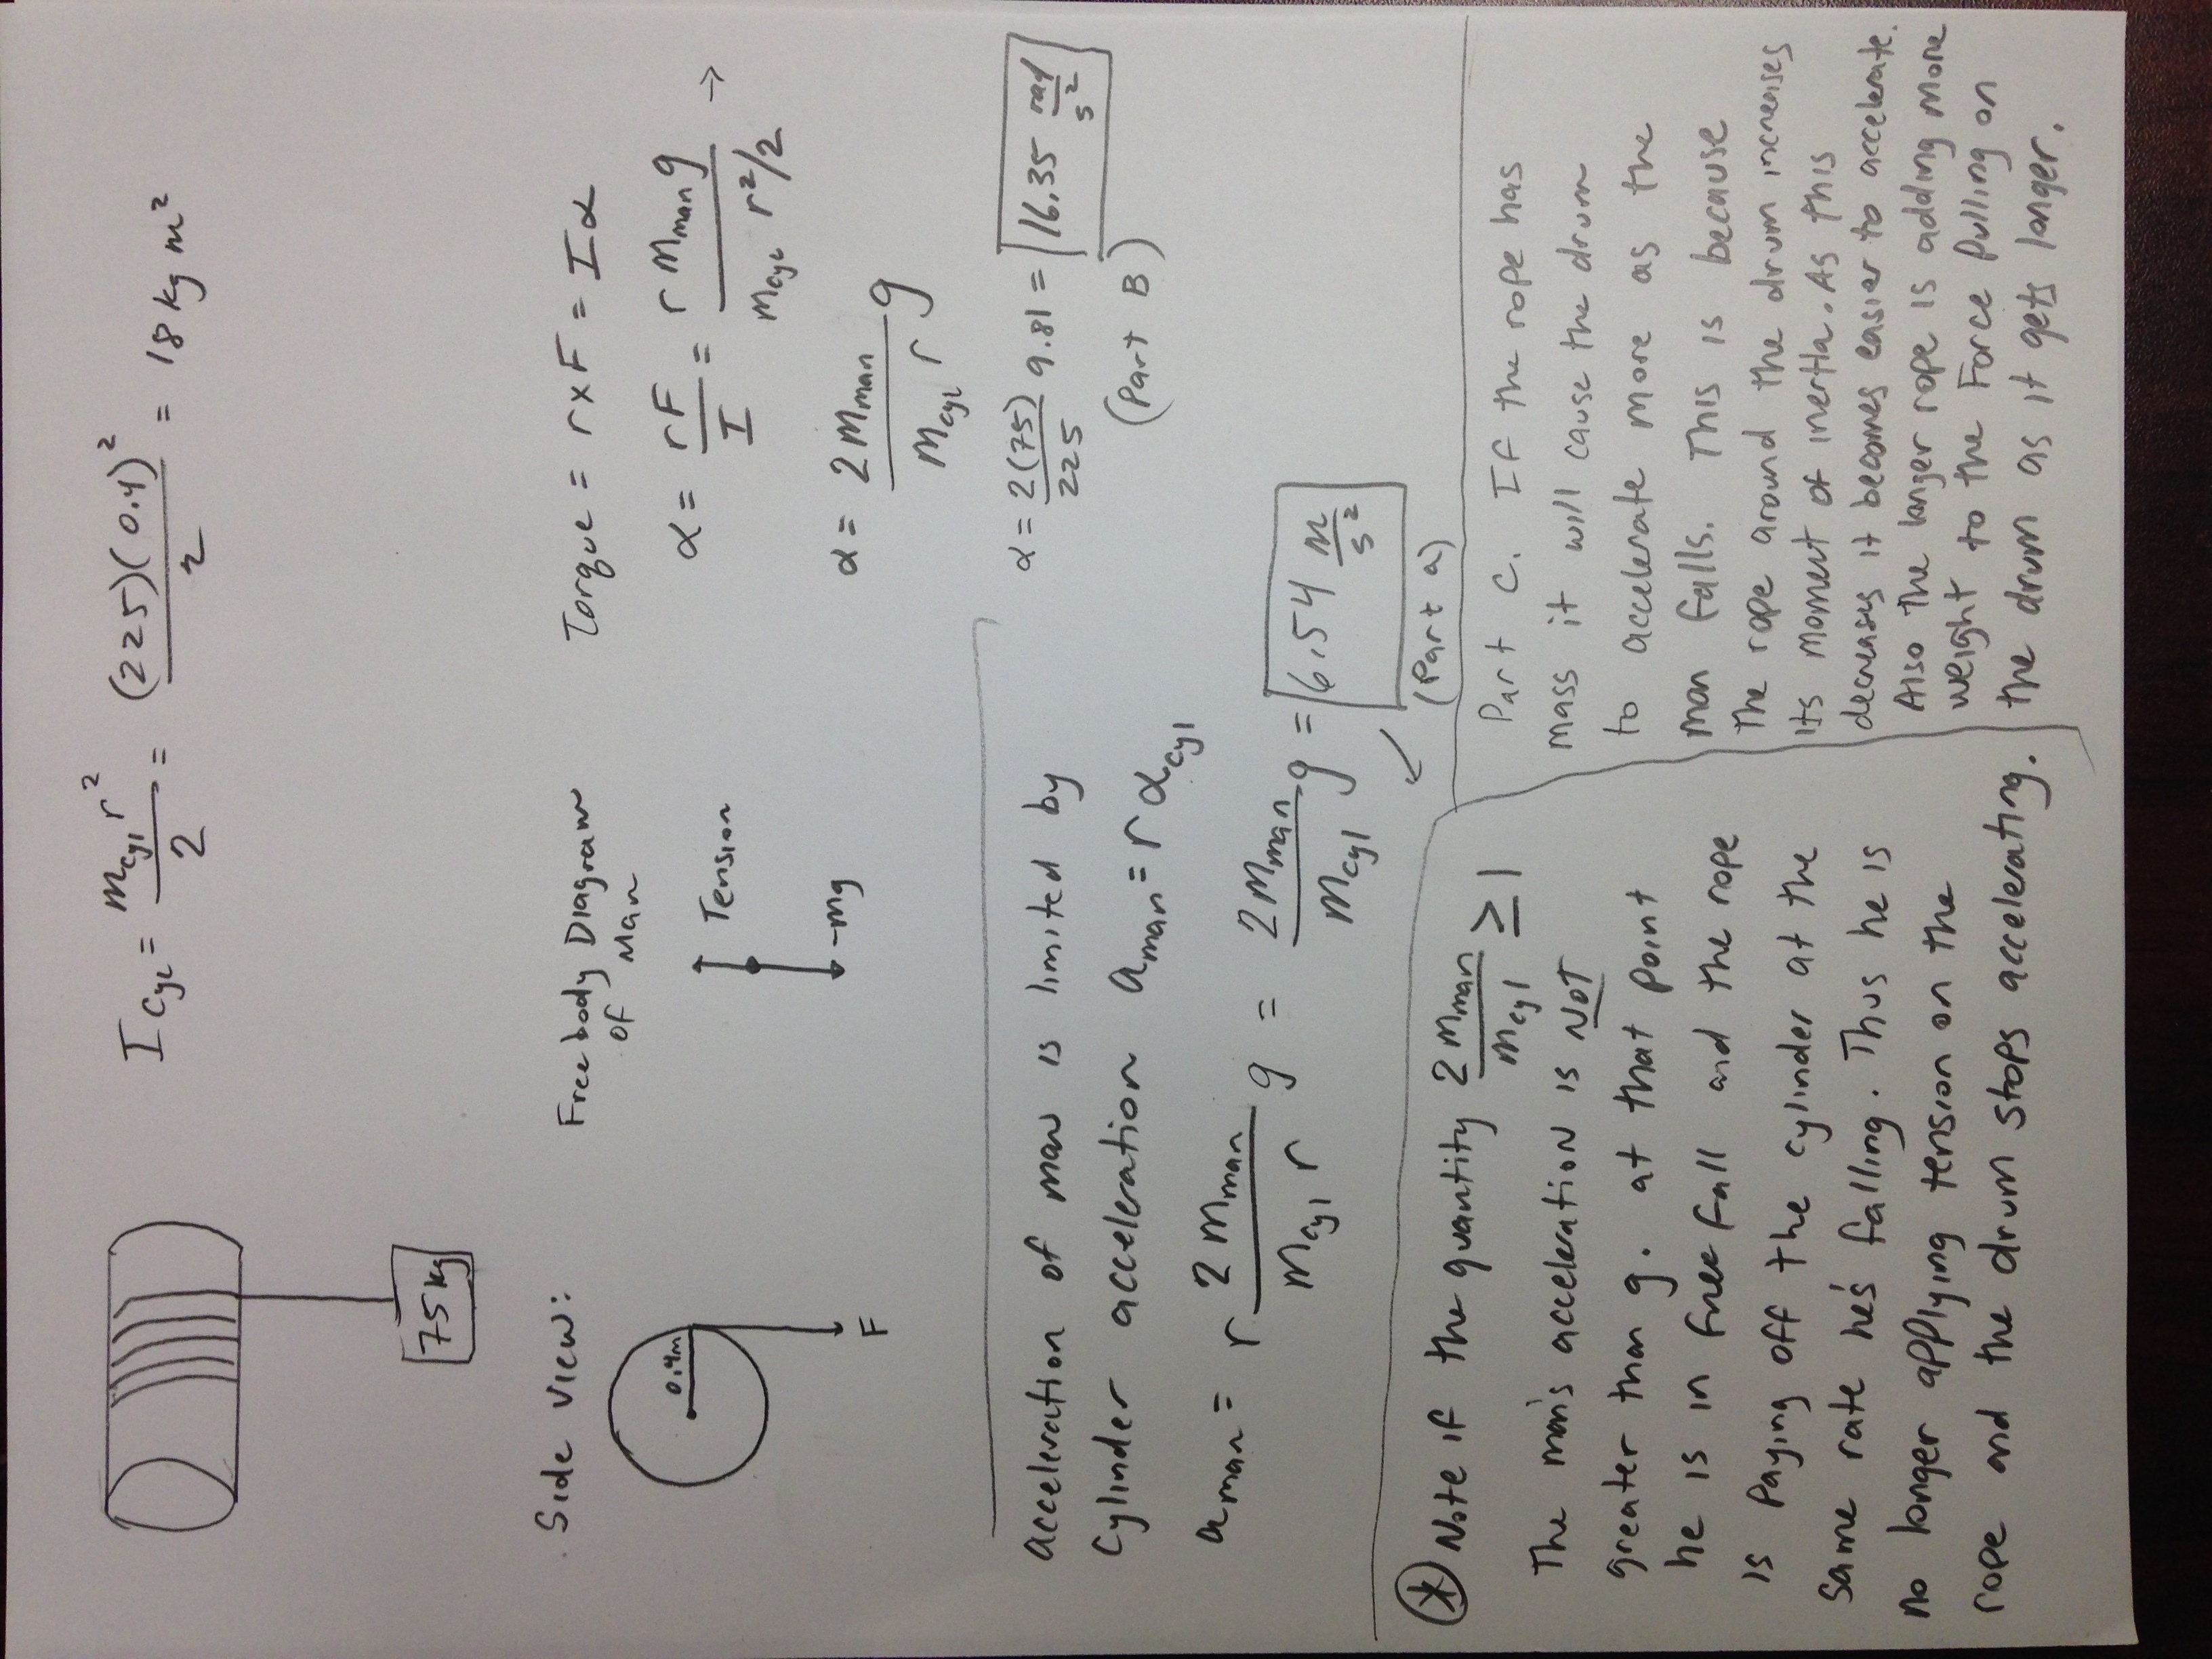 I cyl = m cyl r² / 2 = (225)(0.4)² / 2 = 18 kg m²
75 kg
Side View:
0.4m
F
Freebody Diagram
of Man
Tension
-mg
Torque = r x F = I α
α = rF / I = r m man g / m cyl r²/2 →
α = 2 m man / m cyl r g
α = 2(75) / 225 9.81 = 16.35 rad / s²
(Part B)
acceleration of man is limited by
Cylinder acceleration a man = r α cyl
a man = r 2 m man / m cyl r g = 2 m man / m cyl g = 6.54 m / s²
(Part a)
* Note if the quantity 2 m man / m cyl ≥ 1
The man's acceleration is NOT
greater than g. at that point
he is in free fall and the rope
is paying off the cylinder at the
same rate he's falling. Thus he is
no longer applying tension on the
rope and the drum stops accelerating.
Part C. If the rope has
mass it will cause the drum
to accelerate more as the
man falls. This is because
The rope around the drum increases
its moment of inertia. As this
decreases it becomes easier to accelerate.
Also the longer rope is adding more
weight to the Force pulling on
the drum as it gets longer.